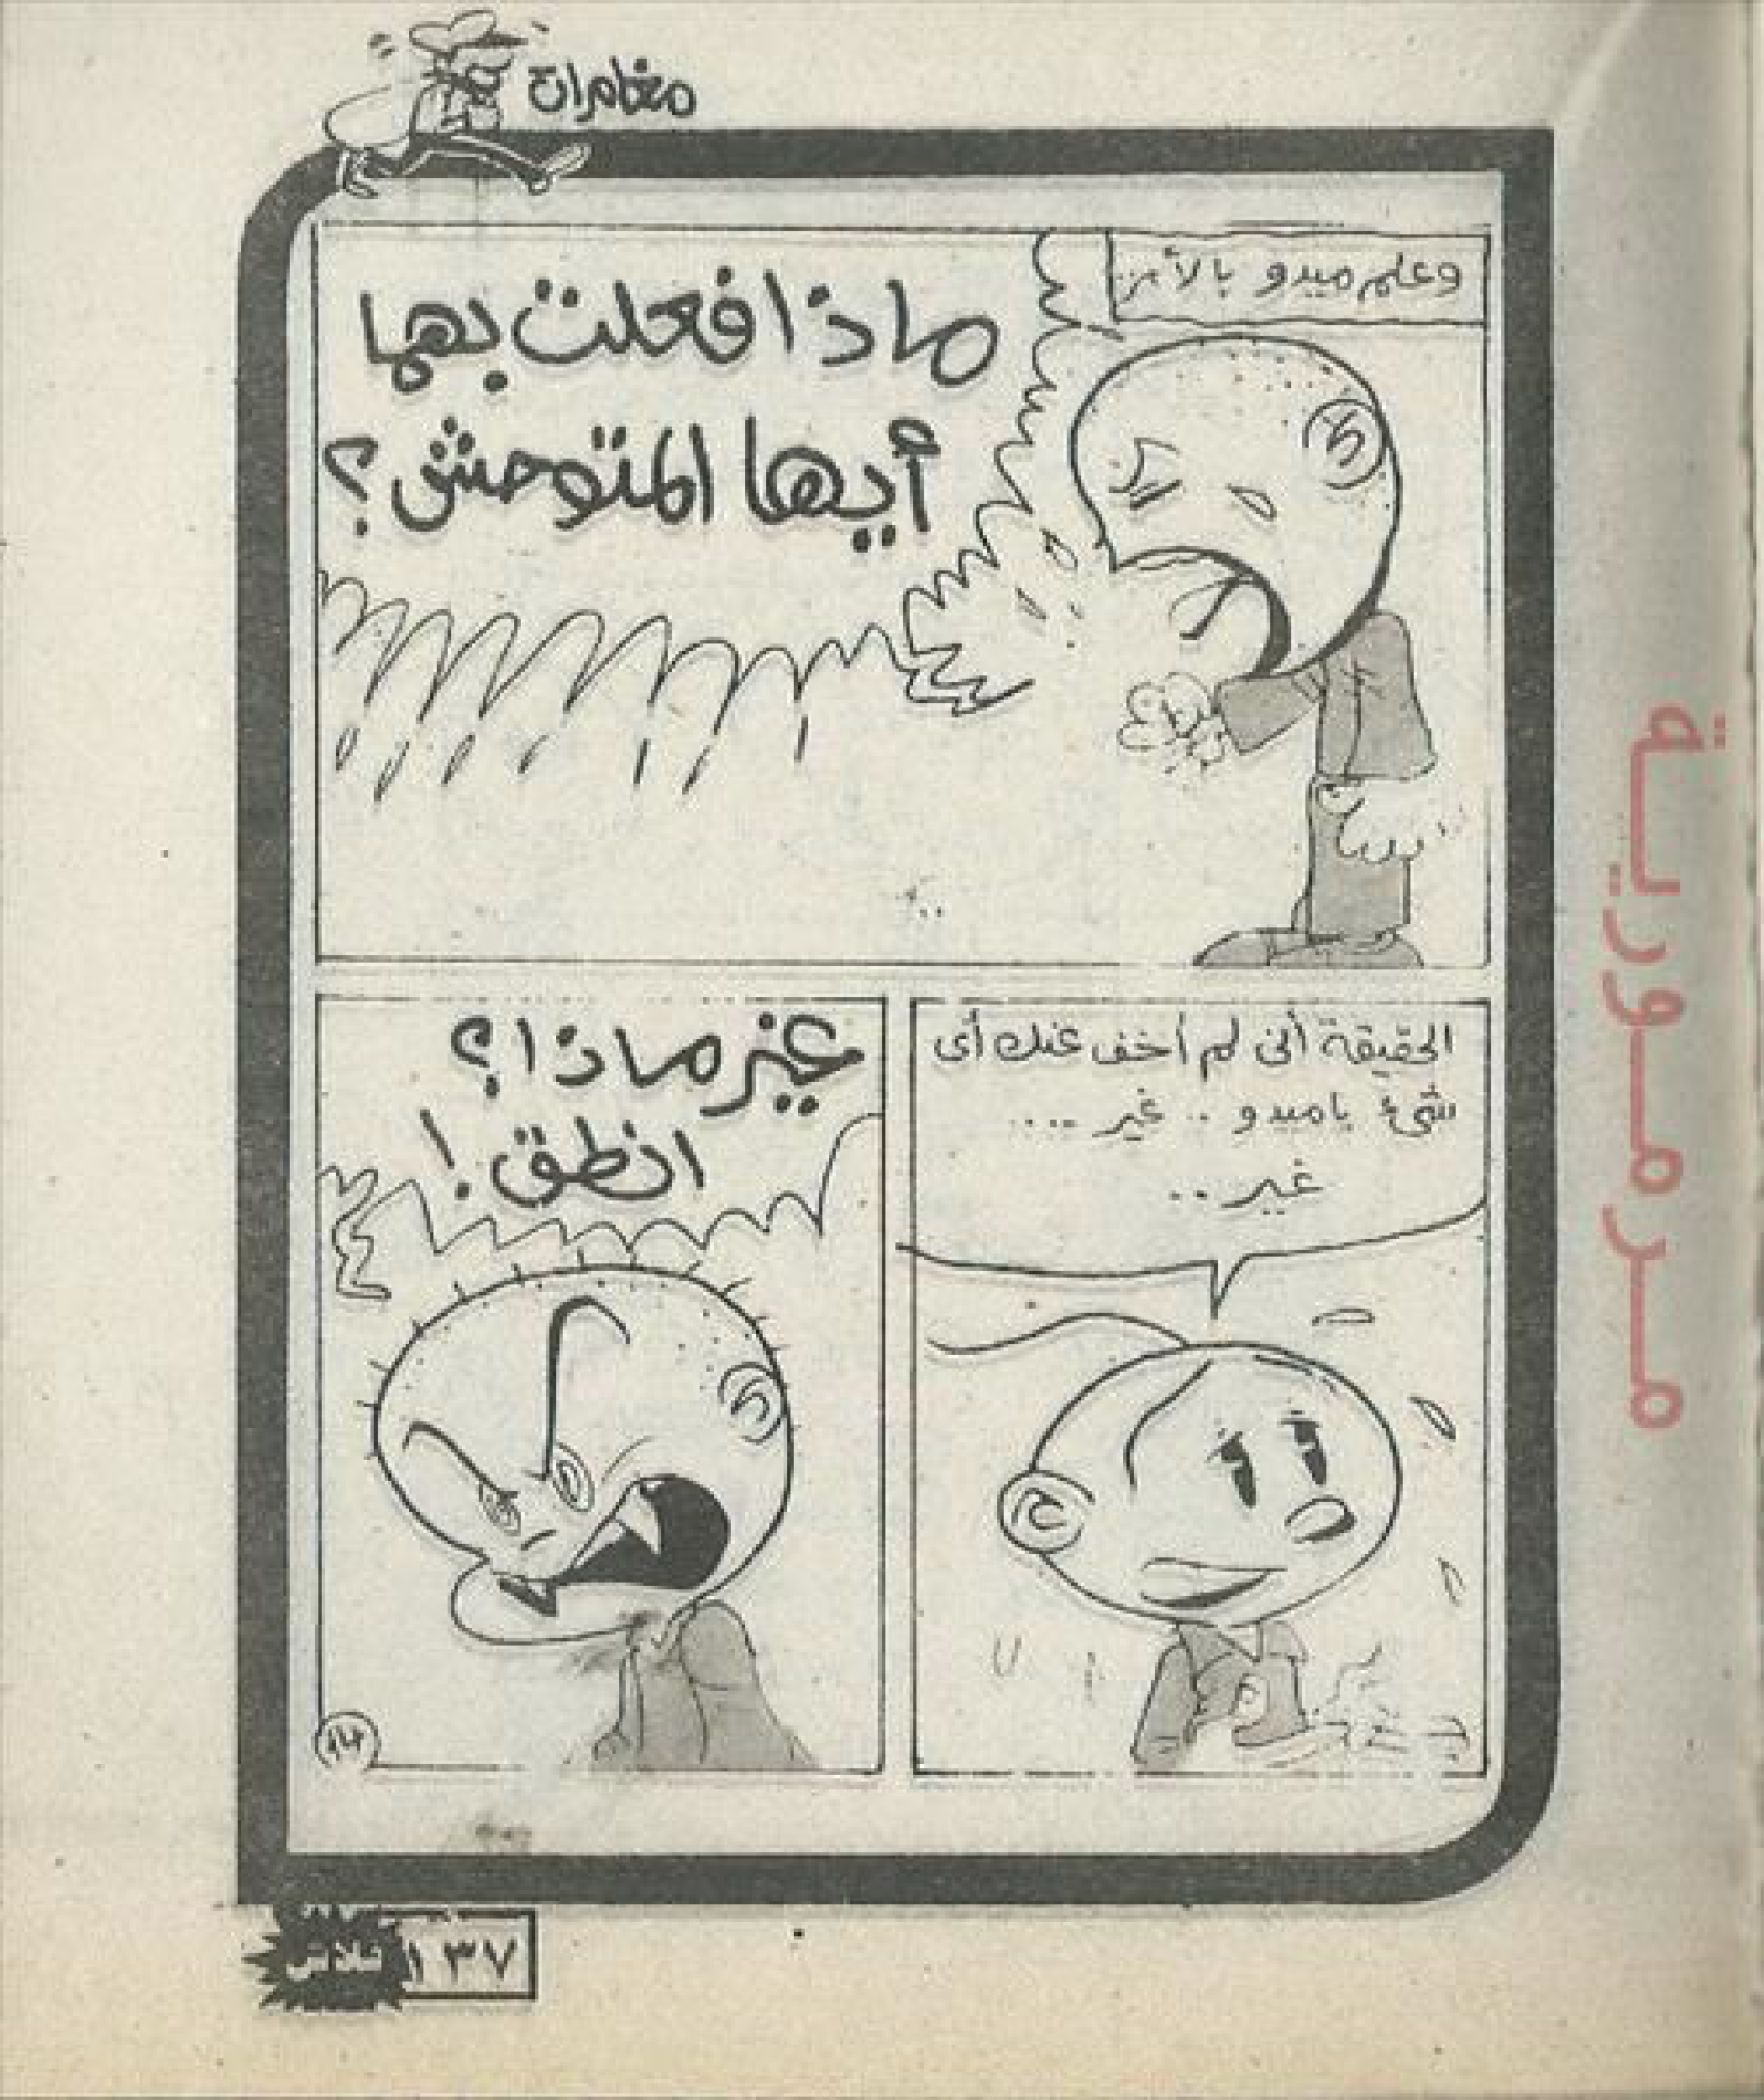 مغامرات
وعلم ميدو بالأمر..
ماذا فعلت بها
أيها المتوحش؟
الحقيقة أنى لم أخف عنك أى
شئ يا ميدو .. غير ....
غير ..
غير ماذا؟
انطق!
فلاش
١٣٧
مرمورية